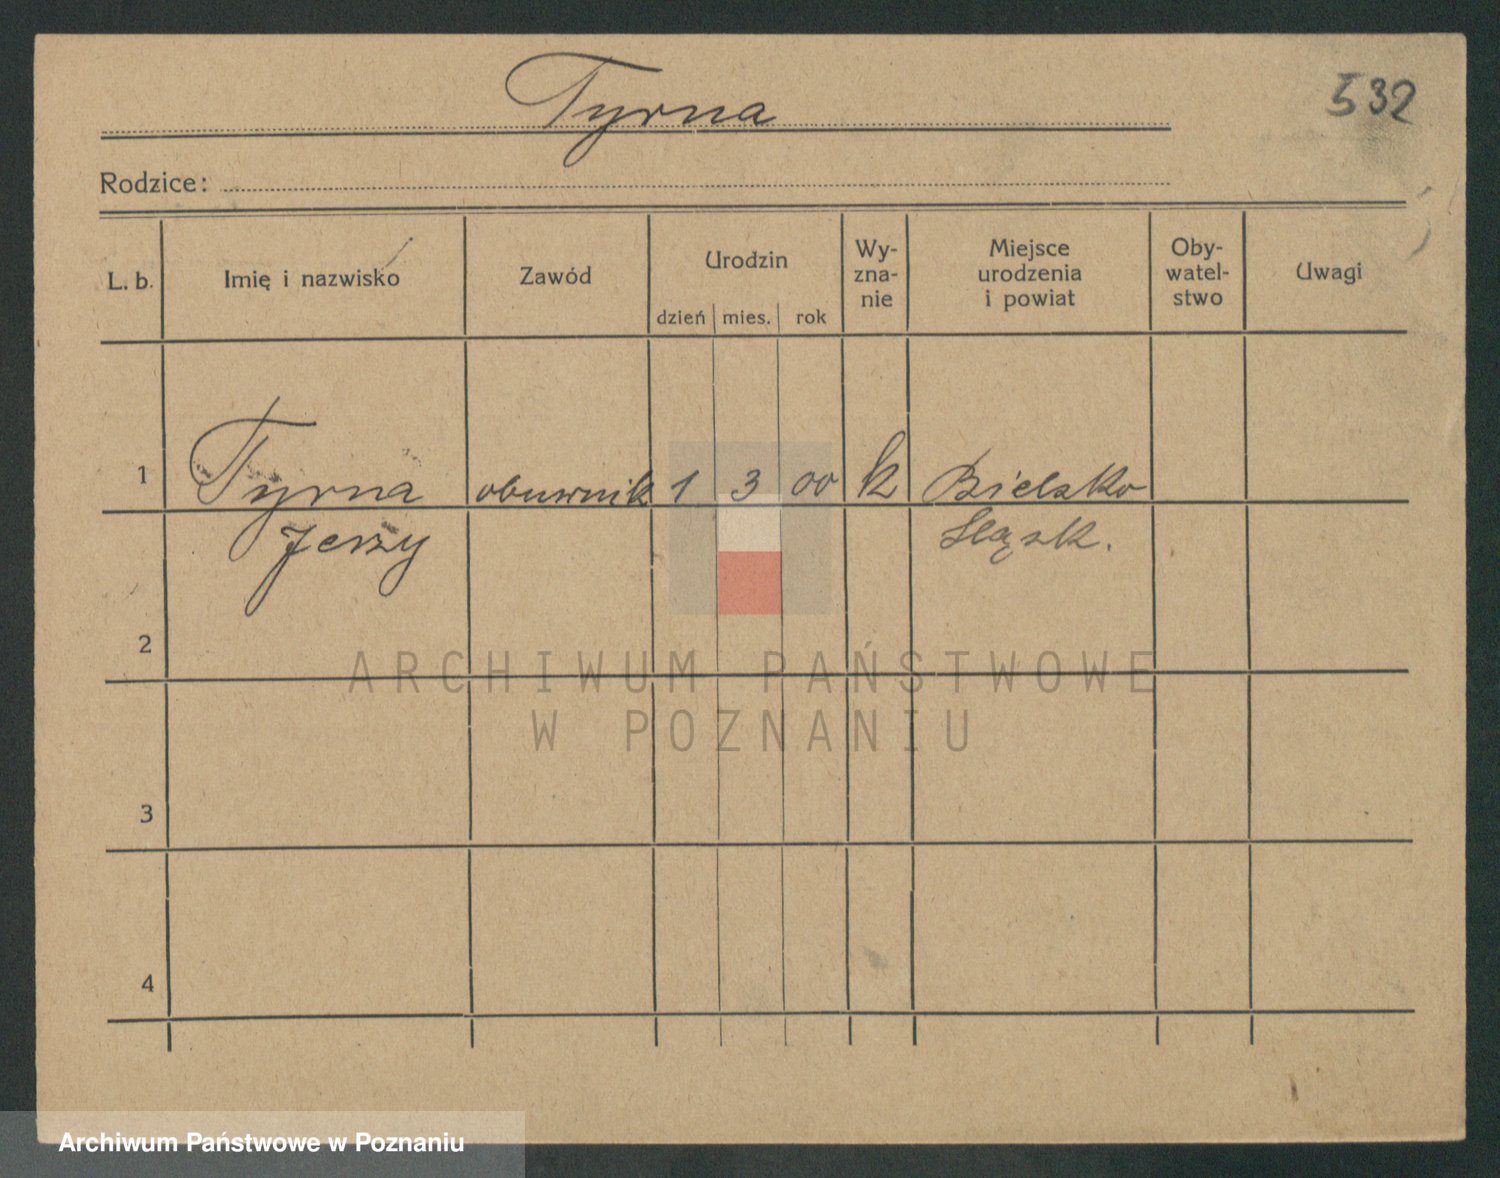 Tyrna
532
Rodzice:
L. b. Imię i nazwisko Zawód Urodzin Wy- Miejsce Oby- Uwagi
zna- urodzenia watel-
nie i powiat stwo
dzień mies. rok
1 Tyrna obuwnik 1 3 00 k Bielsko
Jerzy Śląsk.
2
3
4
ARCHIWUM PAŃSTWOWE
W POZNANIU
Archiwum Państwowe w Poznaniu